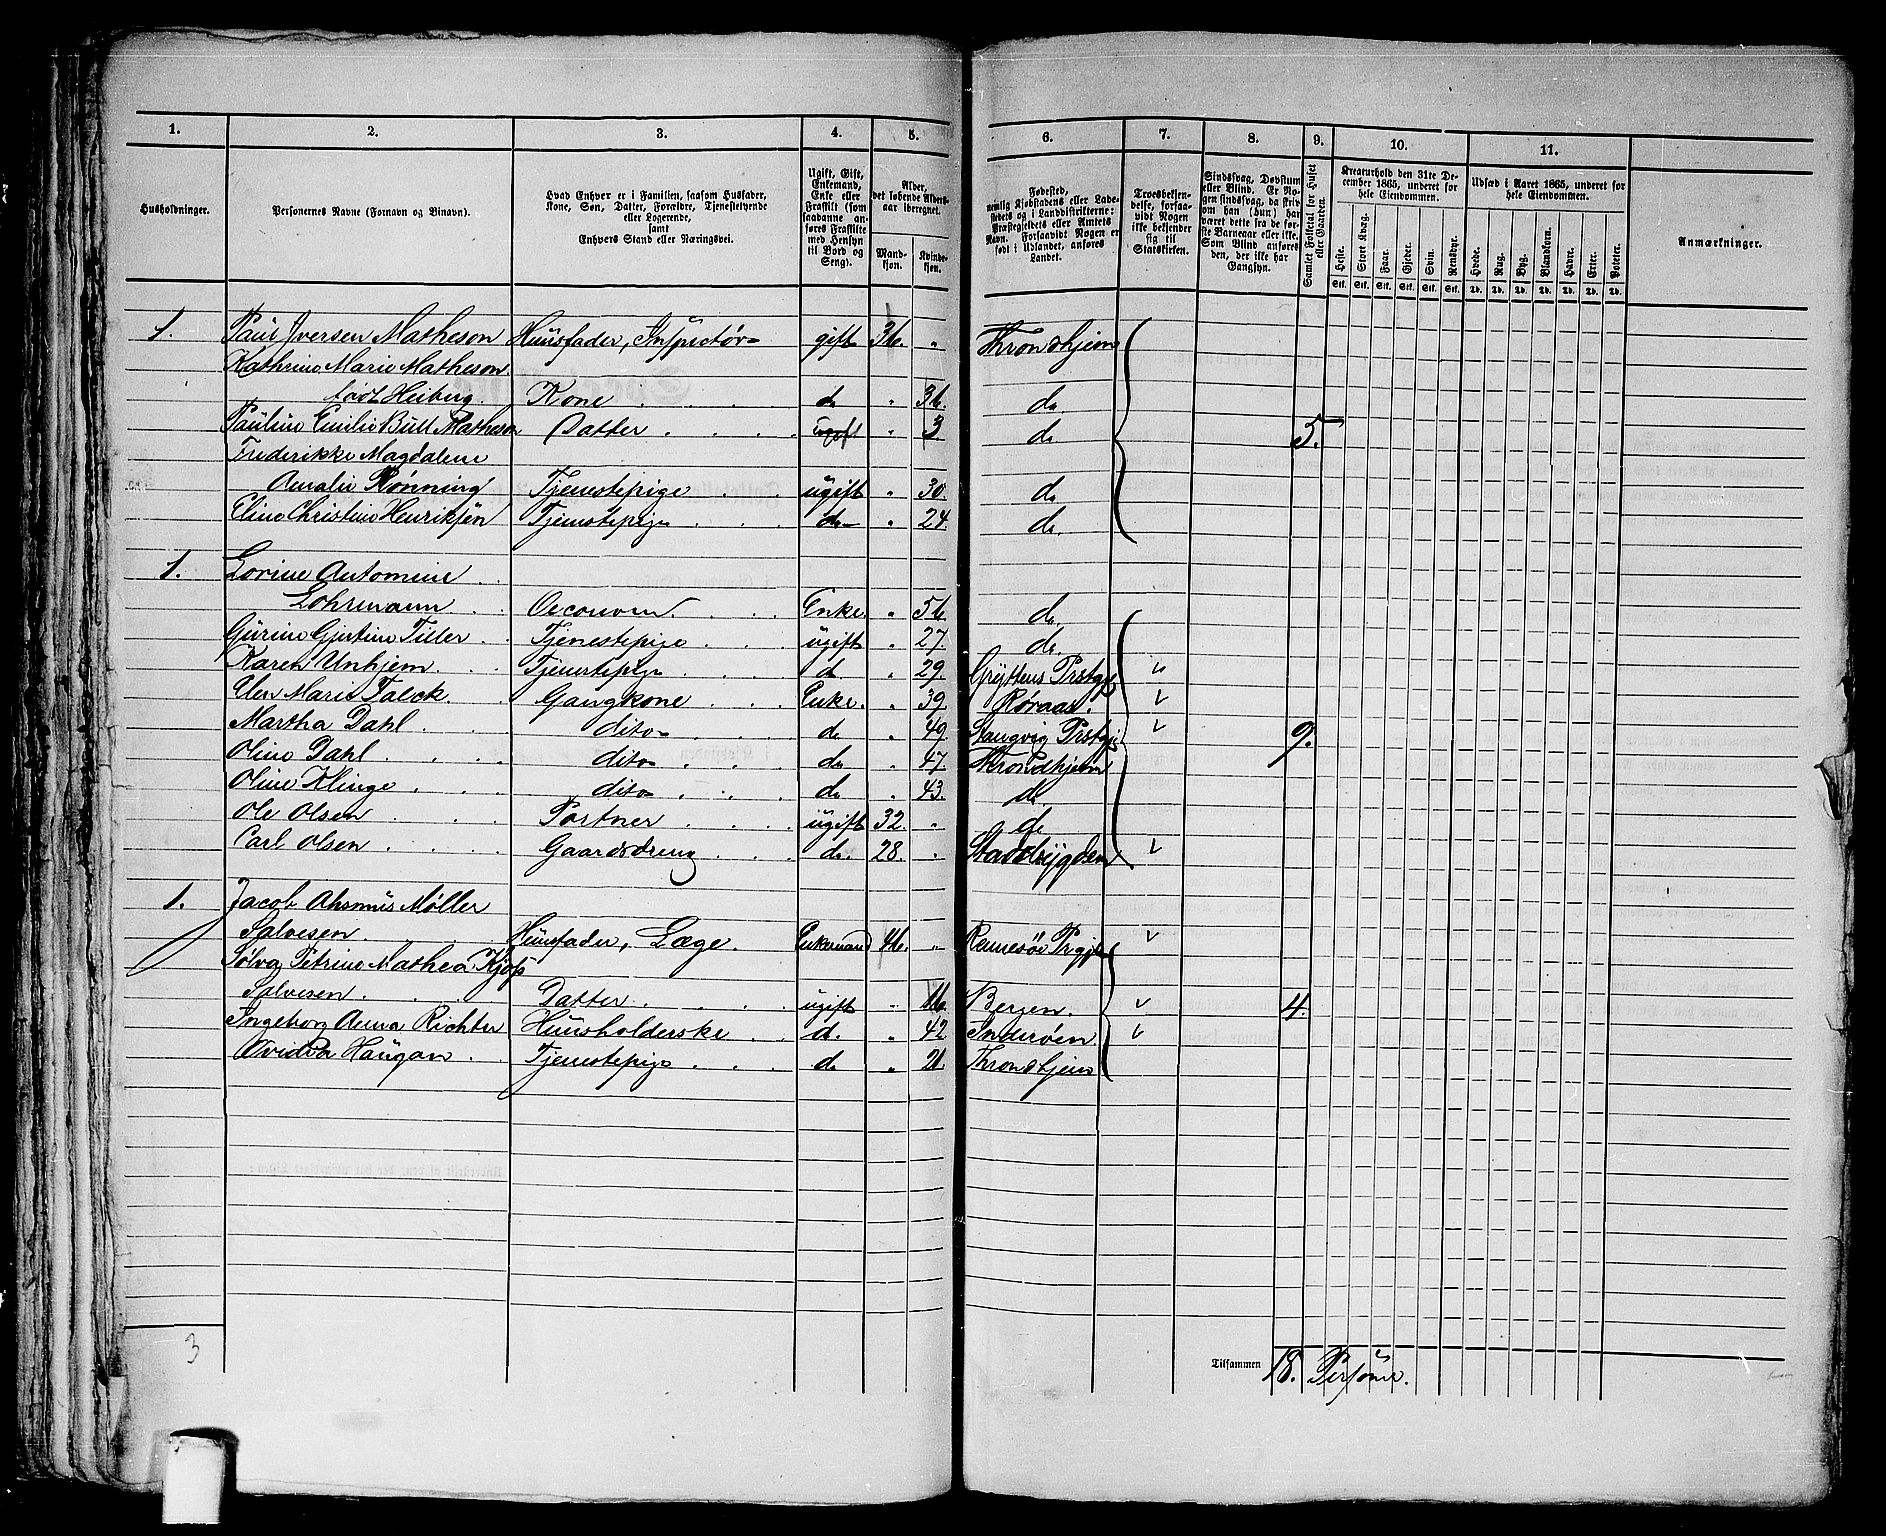 1. 2. 3. 4. 5. 6. 7. 8. 9. 10. 11.
Husholdninger.
Personernes Navne (Fornavn og Binavn).
Hvad Enhver er i Familien, saasom Husfader,
Kone, Søn, Datter, Forældre, Tjenestetyende
eller Logerende,
samt
Enhvers Stand eller Næringsvei.
Ugift, Gift,
Enkemand,
Enke eller
Fraskilt (som
saadanne an-
føres Fraskilte
med Hensyn
til Bord og
Seng).
Alder,
det løbende Alders-
aar iberegnet.
Mand-
kjøn.
Kvinde-
kjøn.
Fødested,
nemlig Kjøbstadens eller Lade-
stedets og i Landdistrikterne:
Præstegjeldets eller Amtets
Navn. Forsaavidt Nogen er
født i Udlandet, anføres
Landet.
Troesbekjen-
delse, forsaa-
vidt Nogen
ikke bekjender
sig til
Statskirken.
Sindssvag, Døvstum
eller Blind. Er No-
gen sindssvag, da skriv
om han (hun) har
været dette fra de før-
ste Barneaar eller ikke.
Som Blind anføres
den, der ikke har
Gangsyn.
Samlet Folketal for Huset
eller Gaarden.
Kreaturhold den 31te De-
cember 1865, underet for
hele Eiendommen.
Heste. Stort Kvæg. Faar. Gjeder. Svin. Rensdyr.
Stk. Stk. Stk. Stk. Stk. Stk.
Udsæd i Aaret 1865, underet for
hele Eiendommen.
Hvede. Rug. Byg. Blandkorn. Havre. Erter. Poteter.
Td. Td. Td. Td. Td. Td. Td.
Anmærkninger.
1. Paul Iversen Matheson Huusfader, Inspectør gift 36. " Throndhjem
Kathrine Marie Matheson
født Heiberg. Kone d 36. d
Pauline Emilie Bull Matheson Datter ugift " 3 d 5.
Frederikke Magdalene
Amalie Rønning Tjenestepige ugift " 30. d
Eline Christine Henriksen Tjenestepige d " 24. d
1. Lorine Antomine
Lohrmann Oeconom Enke. " 56. d
Gurine Gjertine Tiller Tjenestepige ugift " 27. d
Karen Unhjem Tjenestepige d " 29. Gryttens Prstgj
Elen Marie Falck Gangkone Enke. " 39. Røraas.
Martha Dahl dito d " 49. Stangvig Prstgj 9.
Oline Dahl dito d " 47. Throndhjem
Oline Klinge dito d " 43. d
Ole Olsen Portner ugift 32. " d
Carl Olsen Gaardsdreng d. 28. " Stadsbygden
1. Jacob Ahsmus Møller
Salvesen Huusfader, Læge. Enkemand 46. " Rennesøe Prgj
Sølva Petrine Mathea Kjøß
Salvesen Datter ugift " 16. Bergen. 4.
Ingeborg Anna Richter Huusholderske d. " 42. Inderøen
Haugan Tjenestepige d " 21. Throndhjem
3
Tilsammen 18. Persone.